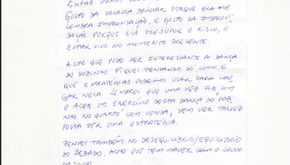 ENTÃO
GOSTO DA PALAVRA BRINCAR PORQUE ELA ME
LEMBRA IMPROVISAÇÃO, E GOSTO DA IMPROVI-
SAÇÃO PORQUE ELA PRESSUPÕE O RISCO, O
ESTAR VIVO NO MOMENTO PRESENTE.
ACHO QUE PODE SER INTERESSANTE A DANÇA
DO SOZINHO. FIQUEI PENSANDO SÓ COMO E
QUE ESTRATÉGIAS PODEMOS USAR PARA CHE-
GAR NESSE QUE UMA VEZ FIZ COM
O ALEX UM EXERCÍCIO DESTA DANÇA DO SOZI-
NHO NO QUARTO SEM VENDA, SEM VER TALVEZ
POSSA SER UMA ESTRATÉGIA.
PENSEI TAMBÉM NO DESEQUILÍBRIO/EQUILÍBRIO
ALGO QUE TEM HAVER COM O